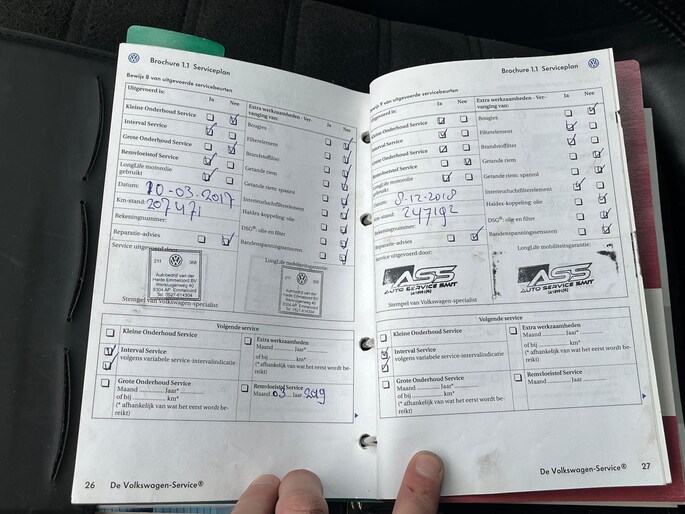 Brochure 1.1 Serviceplan
Bewijs 8 van uitgevoerde servicebeurten
Uitgevoerd is: Ja Nee
Kleine Onderhoud Service
Interval Service
Grote Onderhoud Service
Remvloeistof Service
LongLife motorolie
gebruikt
Datum: 10-03-2017
Km-stand: 207471
Rekeningnummer:
Reparatie-advies
Service uitgevoerd door:
Extra werkzaamheden - Ver-
vanging van: Ja Nee
Bougies
Filterelement
Brandstoffilter
Getande riem
Getande riem: spanrol
Interieurluchtfilterelement
Haldex-koppeling: olie
DSG®: olie en filter
Bandenspanningssensoren
LongLife mobiliteitsgarantie:
211 368
Autobedrijf van der
Heide Emmeloord BV
8304 AP Emmeloord
Tel. 0527-614304
Stempel van Volkswagen-specialist
Volgende service
Kleine Onderhoud Service
Interval Service
volgens variabele service-intervalindicatie
Grote Onderhoud Service
Maand Jaar*
of bij km*
(* afhankelijk van wat het eerst wordt be-
reikt)
Extra werkzaamheden
Maand Jaar*
of bij km*
(* afhankelijk van wat het eerst wordt be-
reikt)
Remvloeistof Service
Maand 03 Jaar 2019
26 De Volkswagen-Service®
Brochure 1.1 Serviceplan
Bewijs 9 van uitgevoerde servicebeurten
Uitgevoerd is: Ja Nee
Kleine Onderhoud Service
Interval Service
Grote Onderhoud Service
Remvloeistof Service
LongLife motorolie
gebruikt
Datum: 8-12-2018
Km-stand: 247192
Rekeningnummer:
Reparatie-advies
Service uitgevoerd door:
Extra werkzaamheden - Ver-
vanging van: Ja Nee
Bougies
Filterelement
Brandstoffilter
Getande riem
Getande riem: spanrol
Interieurluchtfilterelement
Haldex-koppeling: olie
DSG®: olie en filter
Bandenspanningssensoren
LongLife mobiliteitsgarantie:
ASS
AUTO SERVICE SMIT
ASS
AUTO SERVICE SMIT
Stempel van Volkswagen-specialist
Volgende service
Kleine Onderhoud Service
Interval Service
volgens variabele service-intervalindicatie
Grote Onderhoud Service
Maand Jaar*
of bij km*
(* afhankelijk van wat het eerst wordt be-
reikt)
Extra werkzaamheden
Maand Jaar*
of bij km*
(* afhankelijk van wat het eerst wordt be-
reikt)
Remvloeistof Service
Maand Jaar
De Volkswagen-Service® 27